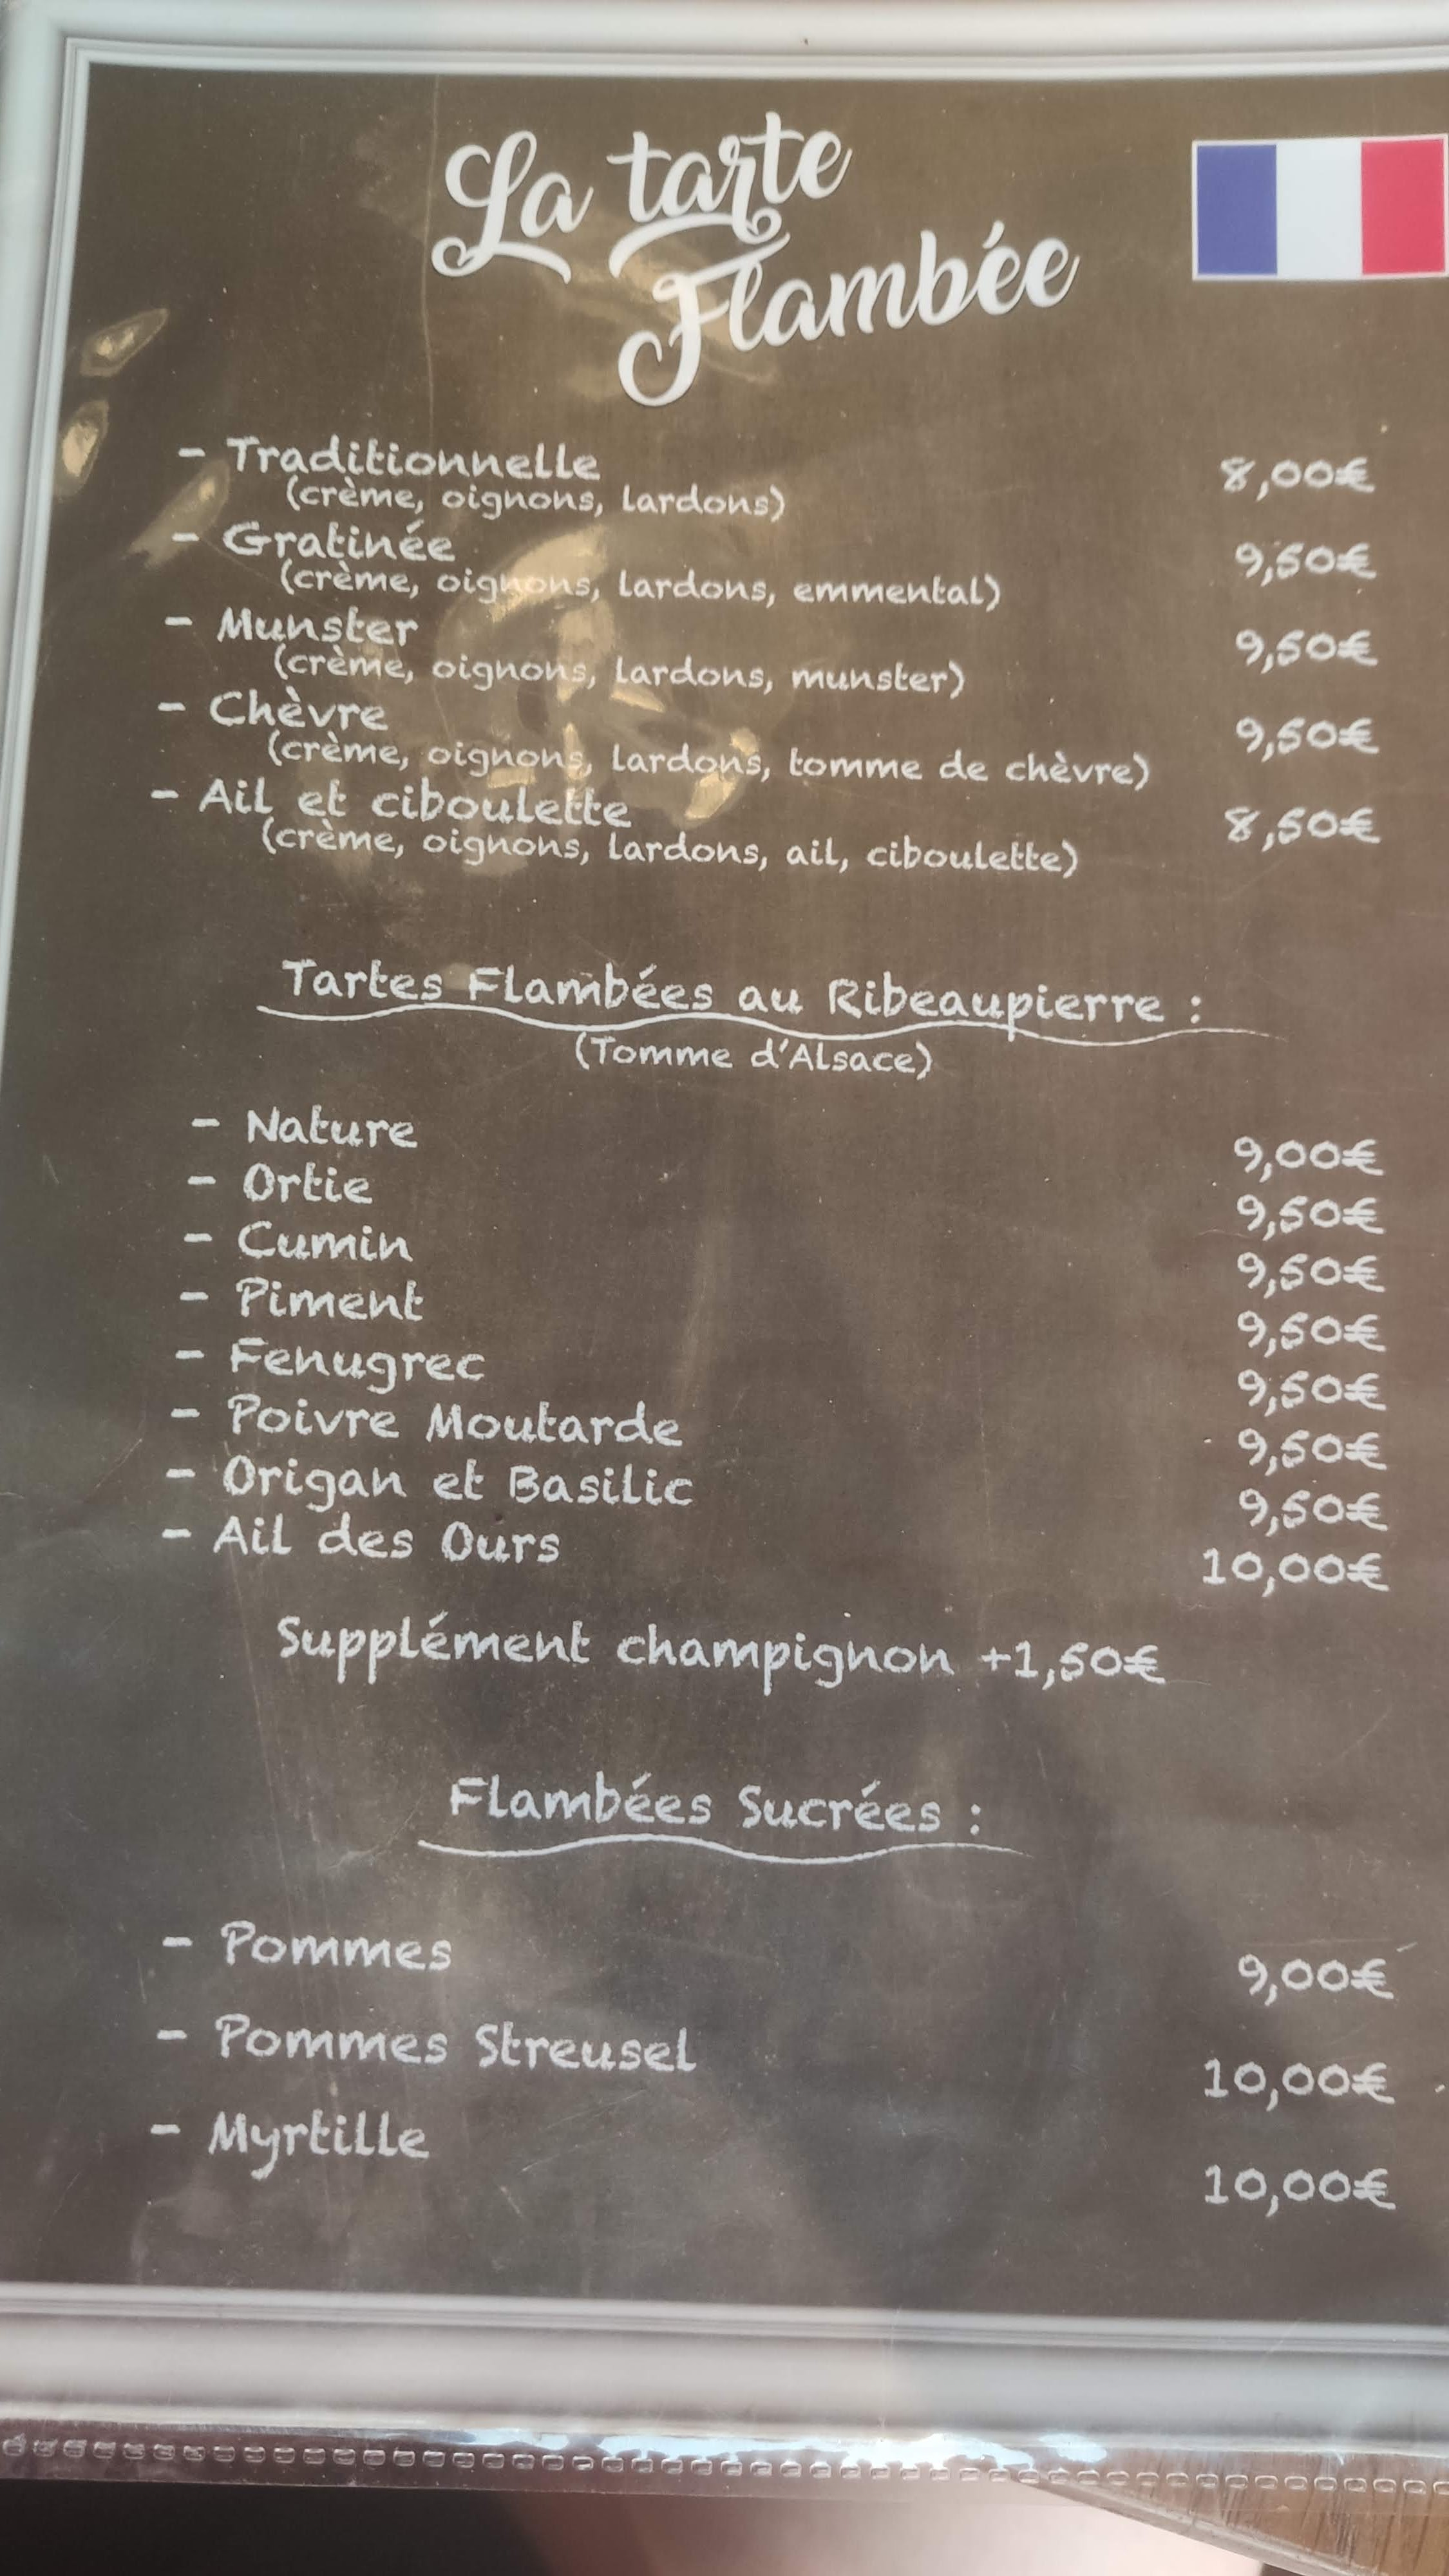 La tarte
Flambée
- Traditionnelle 8,00€
(crème, oignons, lardons)
- Gratinée 9,50€
(crème, oignons, lardons, emmental)
- Munster 9,50€
(crème, oignons, lardons, munster)
- Chèvre 9,50€
(crème, oignons, lardons, tomme de chèvre)
- Ail et ciboulette 8,50€
(crème, oignons, lardons, ail, ciboulette)
Tartes Flambées au Ribeaupierre :
(Tomme d'Alsace)
- Nature 9,00€
- Ortie 9,50€
- Cumin 9,50€
- Piment 9,50€
- Fenugrec 9,50€
- Poivre Moutarde 9,50€
- Origan et Basilic 9,50€
- Ail des Ours 10,00€
Supplément champignon +1,50€
Flambées Sucrées :
- Pommes 9,00€
- Pommes Streusel 10,00€
- Myrtille 10,00€